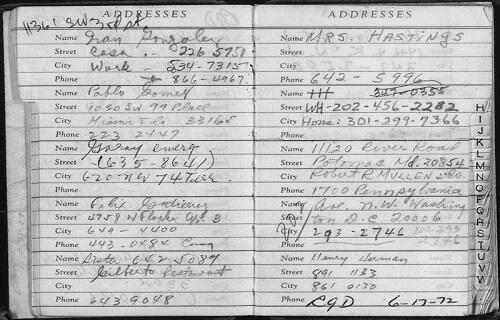 11361 SW 3rd
ADDRESSES
Name Ivan Gonzalez
Street Casa . - 226 5751
City Work - 534-7315
Phone 866-4967
Name Pablo Gomez
Street 1050 SW 99 Place
City Miami Fla 33165
Phone 223 2447
Name Garay energ
Street (635-8641)
City 620 NW 74
Phone
Name Felix
Street 4258 W Flagler 3
City 649-4400
Phone 443-0484
Name 642 5087
Street Gilberto Restaurant
City
Phone 643 9048
ADDRESSES
Name MRS. HASTINGS
Street
City
Phone 642-5996
Name HH 347-0355
Street WH-202-456-2282
City Home: 301-299-7366
Phone
Name 11120 River Road
Street Potomac Md. 20854
City Robert R MULLEN & Co.
Phone 1700 Pennsylvania
Name Ave. N.W. Washing
Street ton D.C 20006
City 293-2746
Phone
Name Henry
Street 891 1133
City 861 0130
Phone 6-17-72
H
I
J
K
L
M
N
O
P
Q
R
S
T
U
V
W